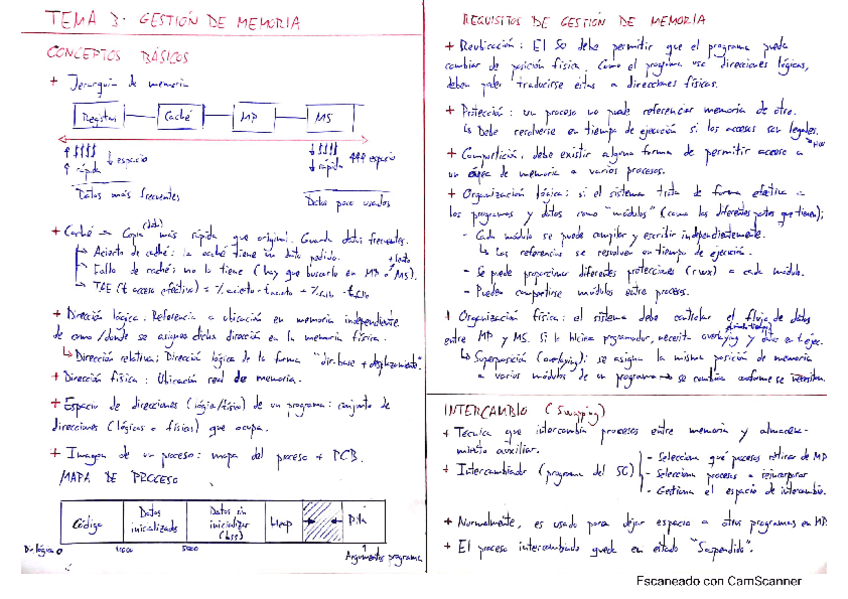 TEMA 3. GESTIÓN DE MEMORIA
CONCEPTOS BÁSICOS
+ Jerarquía de memoria
Registros Caché MP MS
↑ $$$$ ↓ espacio
↑ rápida
↓ $$$$
↓ rápida ↑↑↑ espacio
Datos más frecuentes
Datos poco usados
+ Caché → Copia (dato) más rápida que original. Guarda datos frecuentes.
→ Acierto de caché: la caché tiene un dato pedido.
→ Fallo de caché: no lo tiene (hay que buscarlo en MP o MS). + lento
→ TAE (t acceso efectivo) = % acierto · t acierto + % fallo · t fallo
+ Dirección lógica: Referencia a ubicación en memoria independiente
de como/donde se asignen dicha dirección en la memoria física.
↳ Dirección relativa: Dirección lógica de la forma "dir. base + desplazamiento".
+ Dirección física: Ubicación real de memoria.
+ Espacio de direcciones (lógico/físico) de un programa: conjunto de
direcciones (lógicas o físicas) que ocupa.
+ Imagen de un proceso: mapa del proceso + PCB.
MAPA DE PROCESO
Código
Datos inicializados
Datos sin inicializar (bss)
Heap
Pila
Dir. lógica 0
5000
Argumentos programa
REQUISITOS DE GESTIÓN DE MEMORIA
+ Reubicación: El SO debe permitir que el programa pueda
cambiar de posición física. Como el programa usa direcciones lógicas,
deben poder traducirse estas a direcciones físicas.
+ Protección: un proceso no puede referenciar memoria de otro.
↳ Debe resolverse en tiempo de ejecución si los accesos son legales.
→ HW
+ Compartición: debe existir alguna forma de permitir acceso a
un área de memoria a varios procesos.
+ Organización lógica: si el sistema trata de forma efectiva a
los programas y datos como "módulos" (como las diferentes partes que tienen):
- Cada módulo se puede compilar y escribir independientemente.
↳ Las referencias se resuelven en tiempo de ejecución.
- Se puede proporcionar diferentes protecciones (rwx) a cada módulo.
- Pueden compartirse módulos entre procesos.
+ Organización física: el sistema debe controlar el flujo de datos
entre MP y MS. Si lo hiciera programador, necesita overlaying y en t. ejec.
↳ Superposición (overlaying): se asigna la misma posición de memoria
a varios módulos de un programa → se cambian conforme se necesiten.
INTERCAMBIO (Swapping)
+ Técnica que intercambia procesos entre memoria y almacena-
miento auxiliar.
+ Intercambiador (programa del SO)
- Selecciona qué procesos retirar de MP
- Selecciona procesos a reincorporar
- Gestiona el espacio de intercambio.
+ Normalmente, es usado para dejar espacio a otros programas en MP.
+ El proceso intercambiado queda en estado "Suspendido".
Escaneado con CamScanner